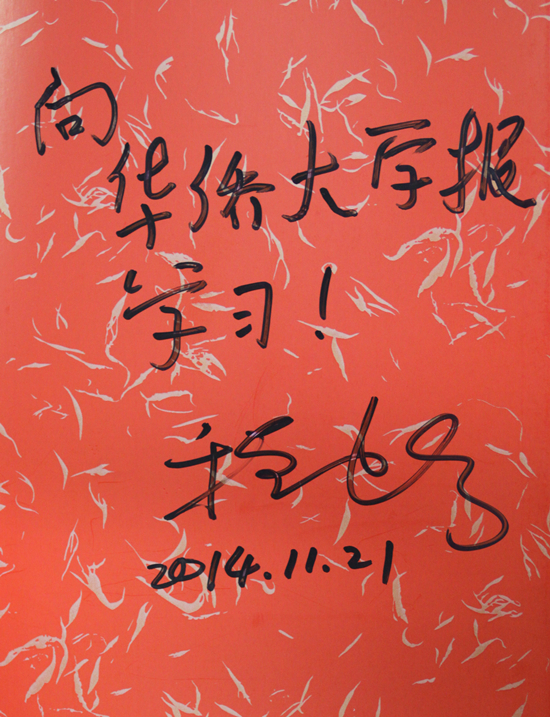 向
华侨大学报
学习！
2014.11.21